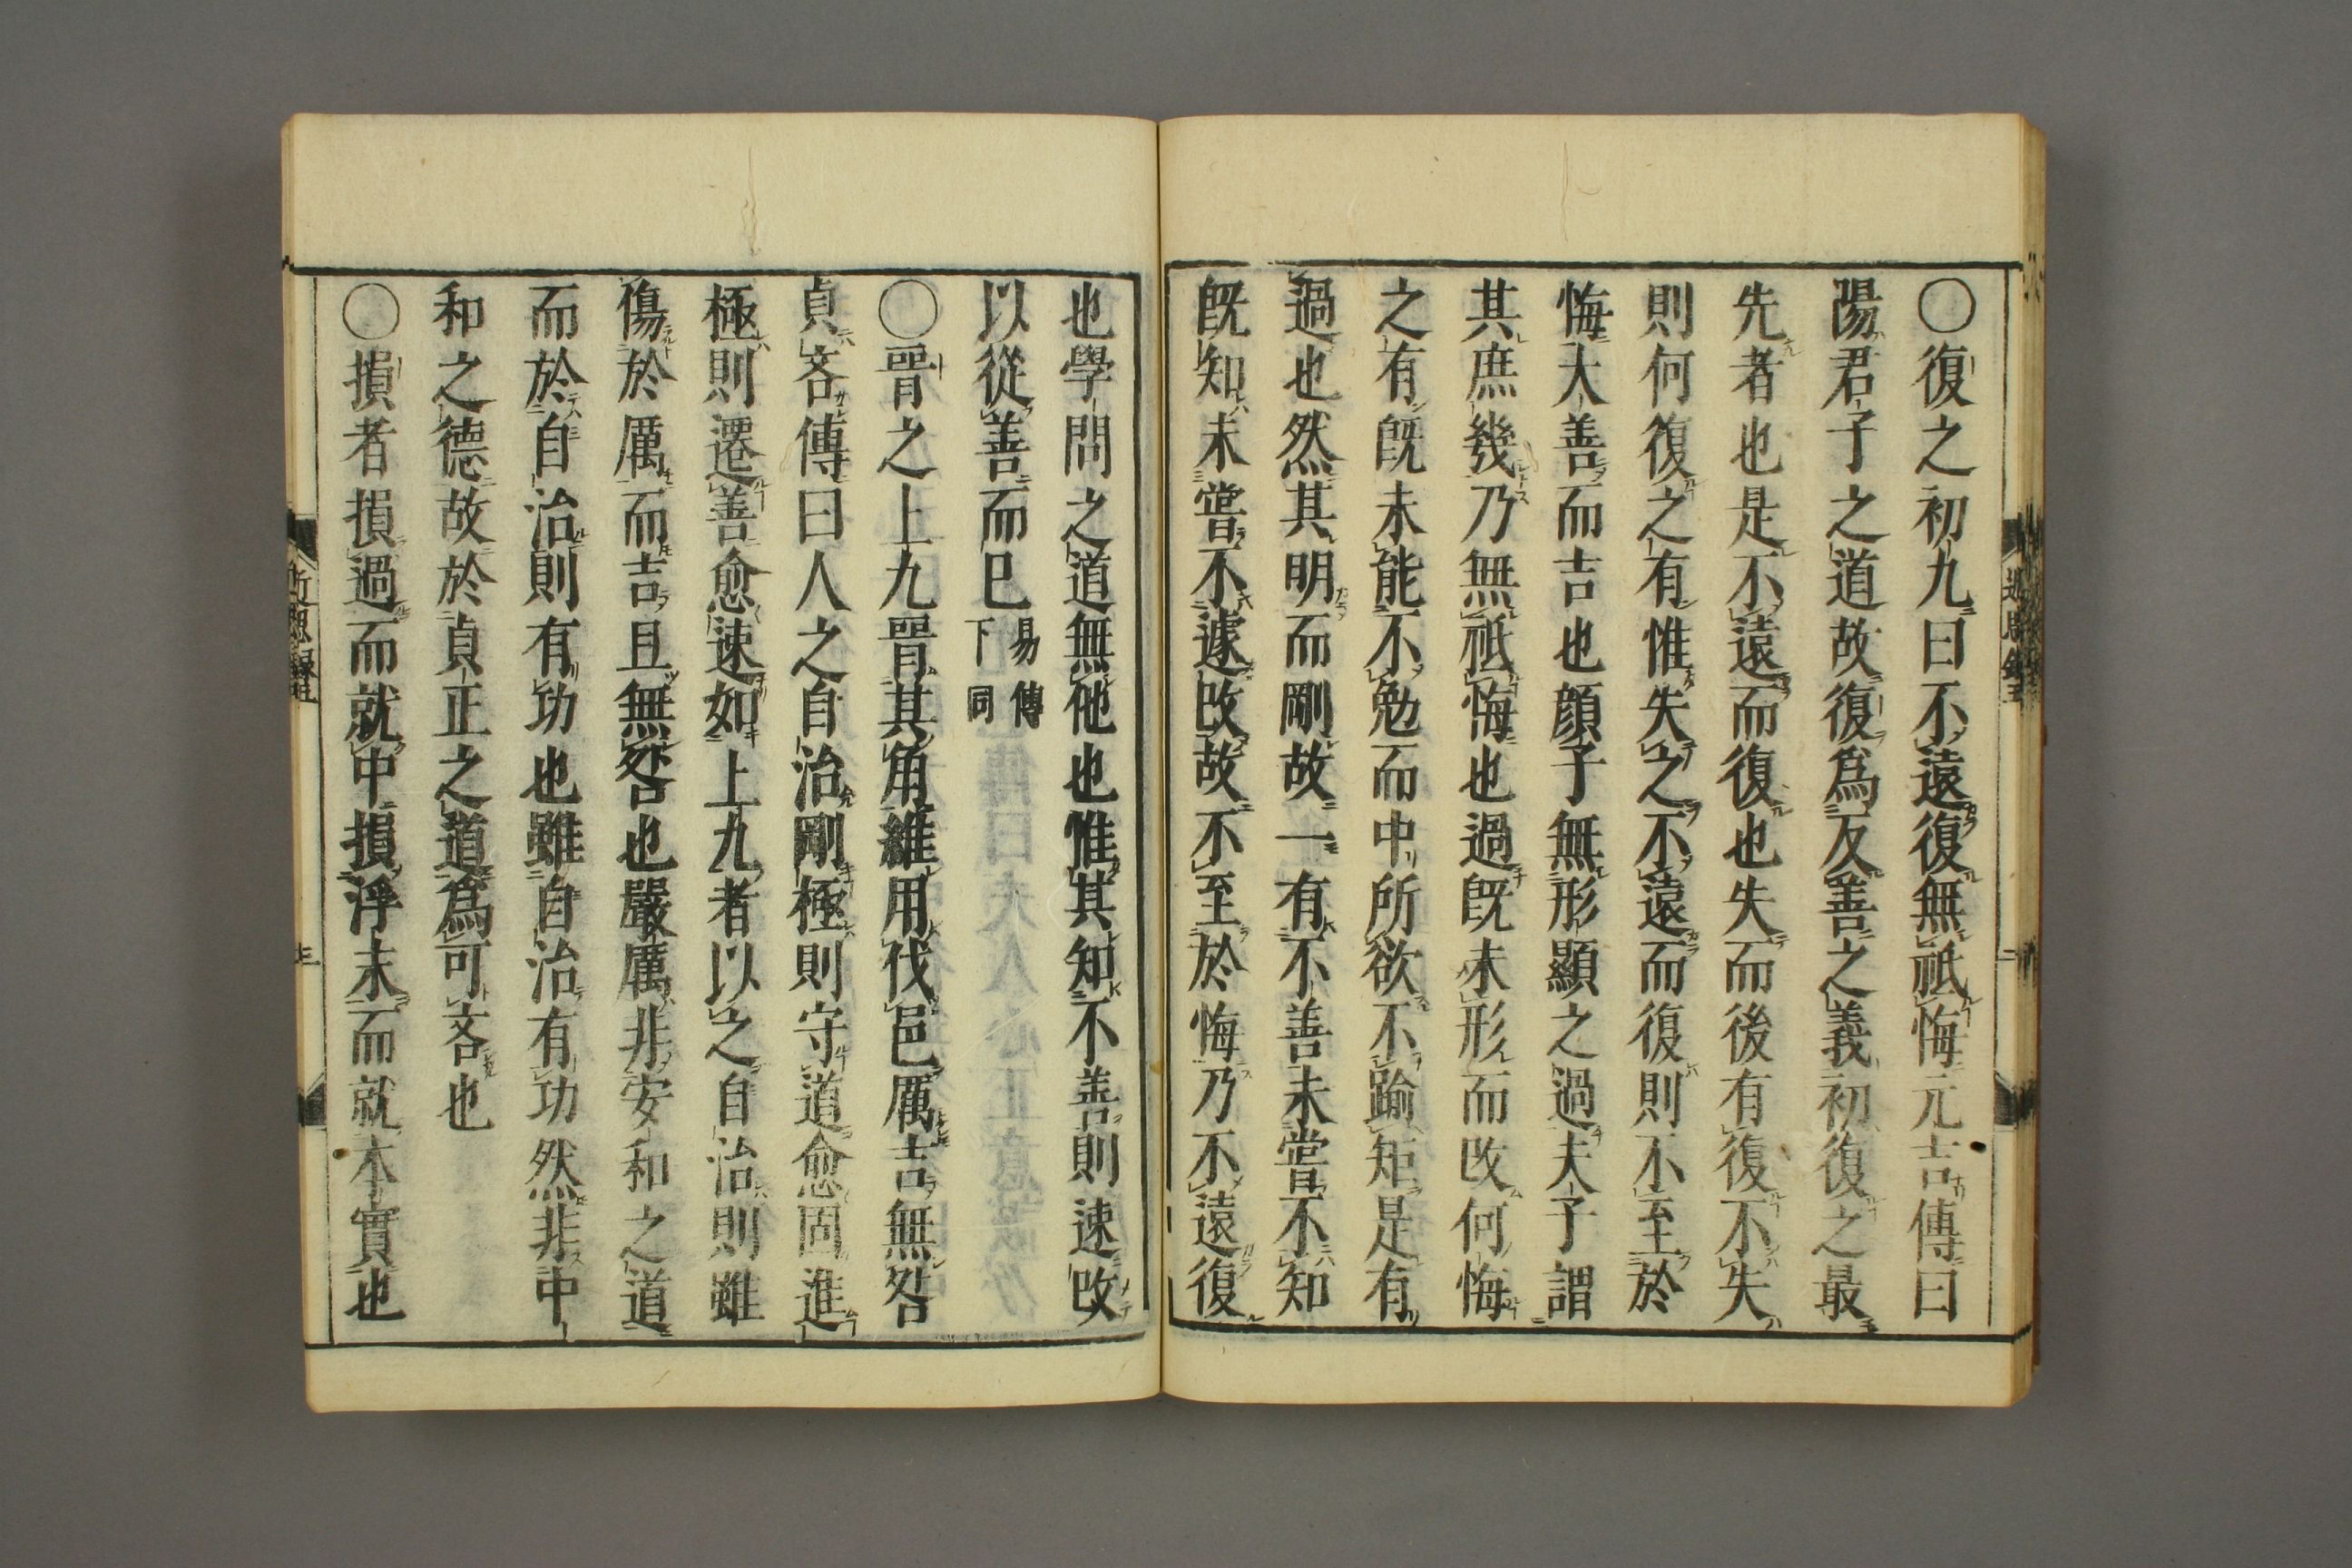 〇復之初九曰不遠復無祇悔元吉傳曰
陽君子之道故復爲反善之義初復之最
先者也是不遠而復也失而後有復不失
則何復之有惟失之不遠而復則不至於
悔大善而吉也顔子無形顯之過夫子謂
其庶幾乃無祇悔也過既未形而改何悔
之有既未能不勉而中所欲不踰矩是有
過也然其明而剛故一有不善未嘗不知
既知未嘗不遽改故不至於悔乃不遠復
也學問之道無他也惟其知不善則速改
以從善而已 易傳
下同
〇晋之上九晋其角維用伐邑厲吉無咎
貞吝傳曰人之自治剛極則守道愈固進
極則遷善愈速如上九者以之自治則雖
傷於厲而吉且無咎也嚴厲非安和之道
而於自治則有功也雖自治有功然非中
和之德故於貞正之道爲可吝也
〇損者損過而就中損浮末而就本實也
近思録